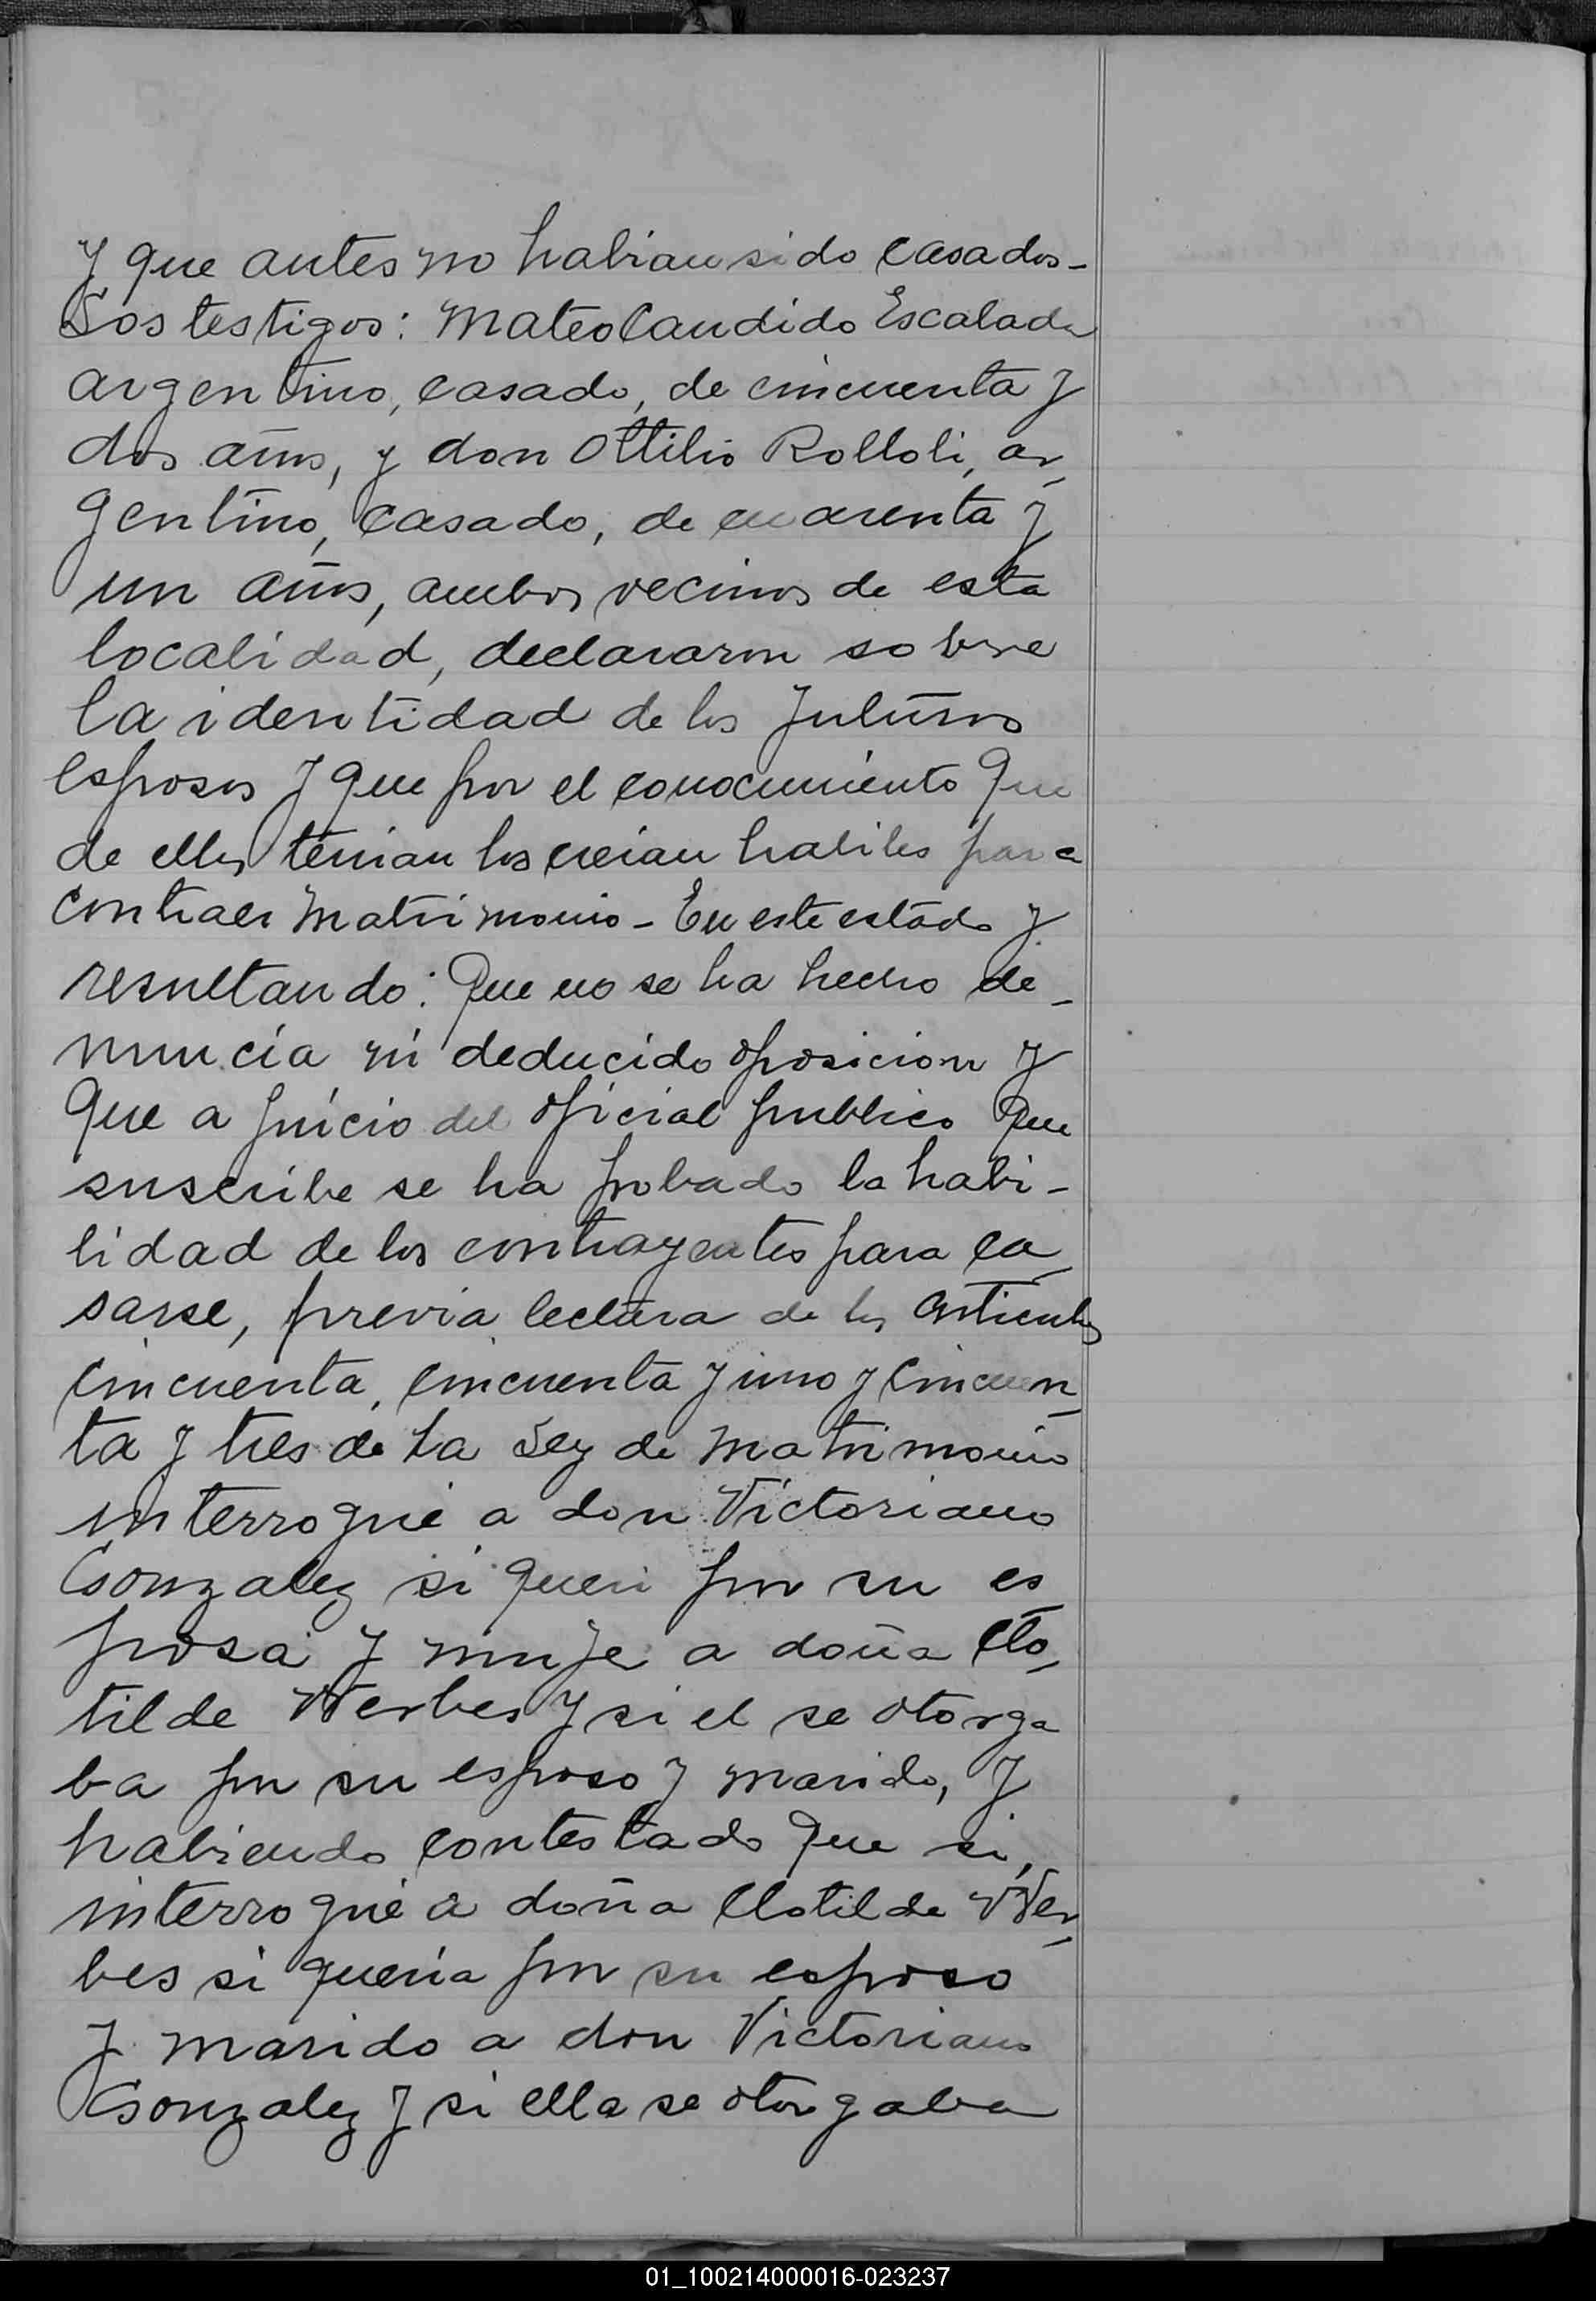 y que antes no habian sido casados-
Los testigos: Mateo Candido Escalada
argentino, casado, de cincuenta y
dos años, y don Ottilio Rolloli, ar-
gentino, casado, de cuarenta y
un años, ambos vecinos de esta
localidad, declararon sobre
la identidad de los futuros
esposos y que por el conocimiento que
de ellos tenian los creian habiles para
contraer matrimonio - En este estado y
resultando: Que no se ha hecho de-
nuncia ni deducido oposicion y
que a juicio del oficial publico que
suscribe se ha probado la habi-
lidad de los contrayentes para ca-
sarse, previa lectura de los articulos
cincuenta, cincuenta y uno y cincuen-
ta y tres de la Ley de matrimonio
interrogué a don Victoriano
Gonzalez si queri por su es-
posa y mujer a doña Clo-
tilde Werbes y si el se otorga
ba por su esposo y marido, y
habiendo contestado que si,
interrogué a doña Clotilde Wer-
bes si queria por su esposo
y marido a don Victoriano
Gonzalez y si ella se otorgaba
01_100214000016-023237